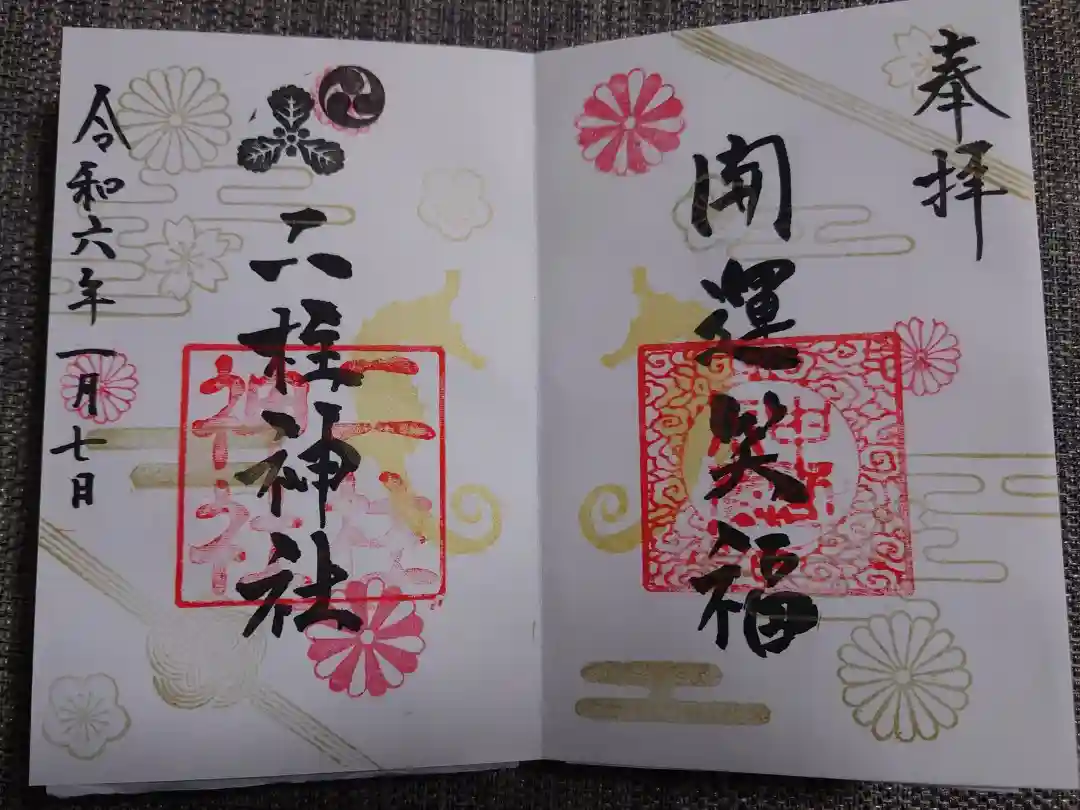 奉拝
開運笑福
二柱神社
令和六年一月七日
二柱神社